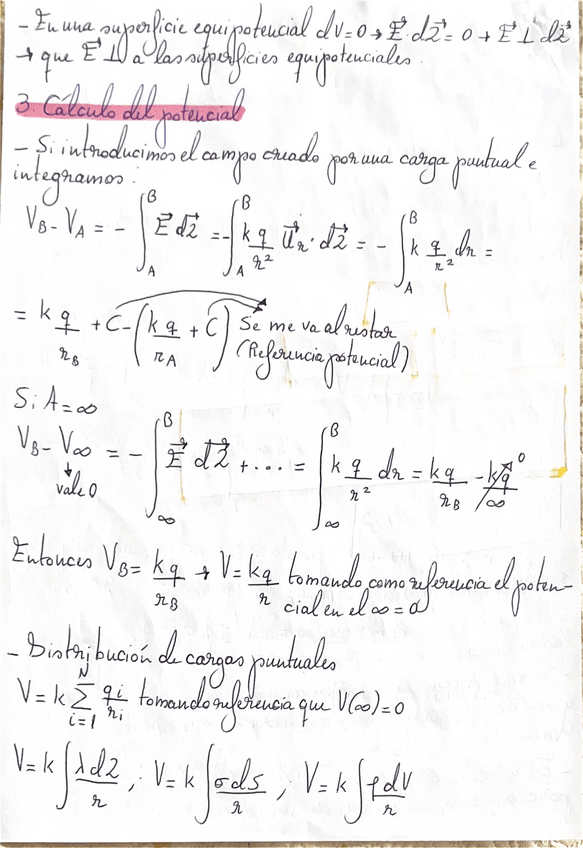 - En una superficie equipotencial dV=0 → E⃗·dl⃗=0 → E⃗ ⊥ dl⃗
→ que E⃗ ⊥ a las superficies equipotenciales.
3. Cálculo del potencial
- Si introducimos el campo creado por una carga puntual e
integramos:
V_B - V_A = - ∫_A^B E⃗ dl⃗ = - ∫_A^B k q/r² u⃗_r · dl⃗ = - ∫_A^B k q/r² dr =
= k q/r_B + C - (k q/r_A + C) Se me va al restar
(Referencia potencial)
Si A = ∞
V_B - V_∞ = - ∫_∞^B E⃗ dl⃗ + .... = ∫_∞^B k q/r² dr = kq/r_B - kq/∞ 0
vale 0
Entonces V_B = kq/r_B → V = kq/r tomando como referencia el poten-
cial en el ∞ = 0
- Distribución de cargas puntuales
V = k ∑_{i=1}^N qi/ri tomando referencia que V(∞)=0
V = k ∫ λdl/r ; V = k ∫ σds/r ; V = k ∫ ρdV/r